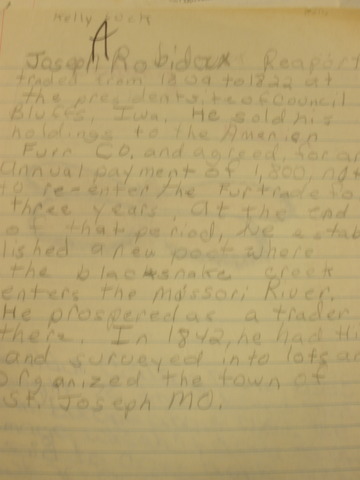 Kelly Lock
A
Joseph Robidax Reaport
traded from 1809 to 1822 at
the presidents, te of Council
Bluffs, Iwa. He sold his
holdings to the Amerien
Furr CO, and agreed, for an
annual payment of 1,800, not
to re-enter the Furtrade fo
three years. at the end
of that period, he estab
lished a new post where
the blacksnake creek
enters the Missori River.
He prospered as a trader
there. In 1842, he had thi
and surveyed into lots an
organized the town of
St. Joseph MO.